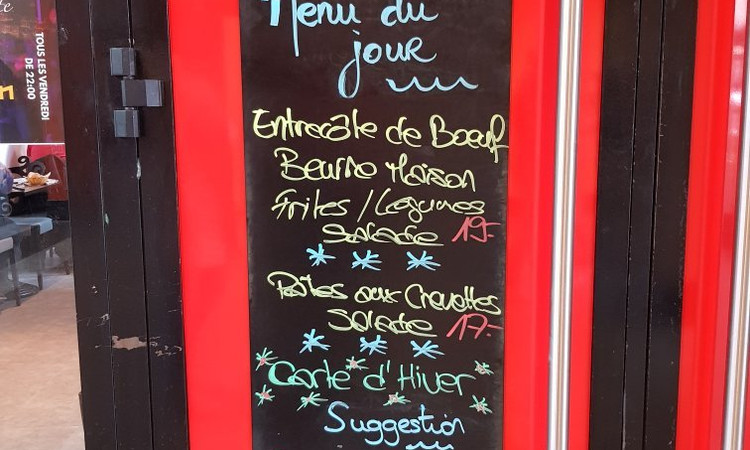 Menu du
jour
Entrecôte de Boeuf
Beurre Maison
Frites / Légumes
Salade 19.-
Pâtes aux Crevettes
Salade 17.-
Carte d'Hiver
Suggestion
TOUS LES VENDREDI
DE 22:00